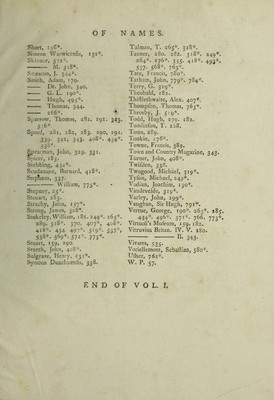 OF NAMES.
Short, 136*.
Simeon Warwicensis, 151*.
Skinner, 572*.
M. 318*.
Smith, Adam, 179.
Dr. John, 340.
G. L. 190*.
Hugh, 495*.
Thomas, 344.
166*.
Sparrow, Thomas, 282, 291, 343.
356*.
Speed, 281, 282, 283, 290, 291,
339, 341, 343, 408*, 434*,
556*.
Speerman, John, 329, 331.
Spicer, 185.
Stebbing, 44*.
Stephens, 337.
William, 773*.
Stepney, 25*.
Stewart, 289.
Strachy, John, 157*.
Strong, James, 326*.
Stukeley, William, 181, 249*, 265*,
289, 318*, 370, 407*, 408*,
418*, 434, 497*, 519*, 535*,
558*, 569*, 572*, 773*.
Stuart, 159, 190.
Sturth, John, 408*.
Sulgrave, Henry, 151*.
Symeon Dunelmensis, 338.
Talman, T. 265*, 318*.
Tanner, 280, 282, 318*, 249*,
264*, 276*, 355, 418*, 493*,
537, 568*, 763*.
Tate, Francis, 780*.
Tatham, John, 779*, 784*.
Terry, G. 319*.
Theobald, 182.
Thistlethwaite, Alex. 407*.
Thompson, Thomas, 763*.
Thoresby, J. 519*.
Todd, Hugh, 279, 282.
Tomlinson, T. 228.
Toms, 289.
Tonkin, 276*.
Towne, Francis, 389.
Town and Country Magazine, 343.
Turner, John, 408*.
Twisden, 338.
Twogood, Michiel, 319*.
Tyson, Michael, 249*.
Vadian, Joachim, 190*.
Vandrevelde, 319*.
Varley, John, 299*.
Vaughan, Sir Hugh, 791*.
Vertue, George, 190*, 265*, 285,
434*, 496*, 571*, 766, 773*.
Vetusti's Museum, 159, 182.
Vitruvius Britan. IV. V. 180.
II. 343.
Vivares, 535.
Voriellemont, Sebastian, 580*.
Usher, 762*.
W. P. 57.
END OF VOL. I.